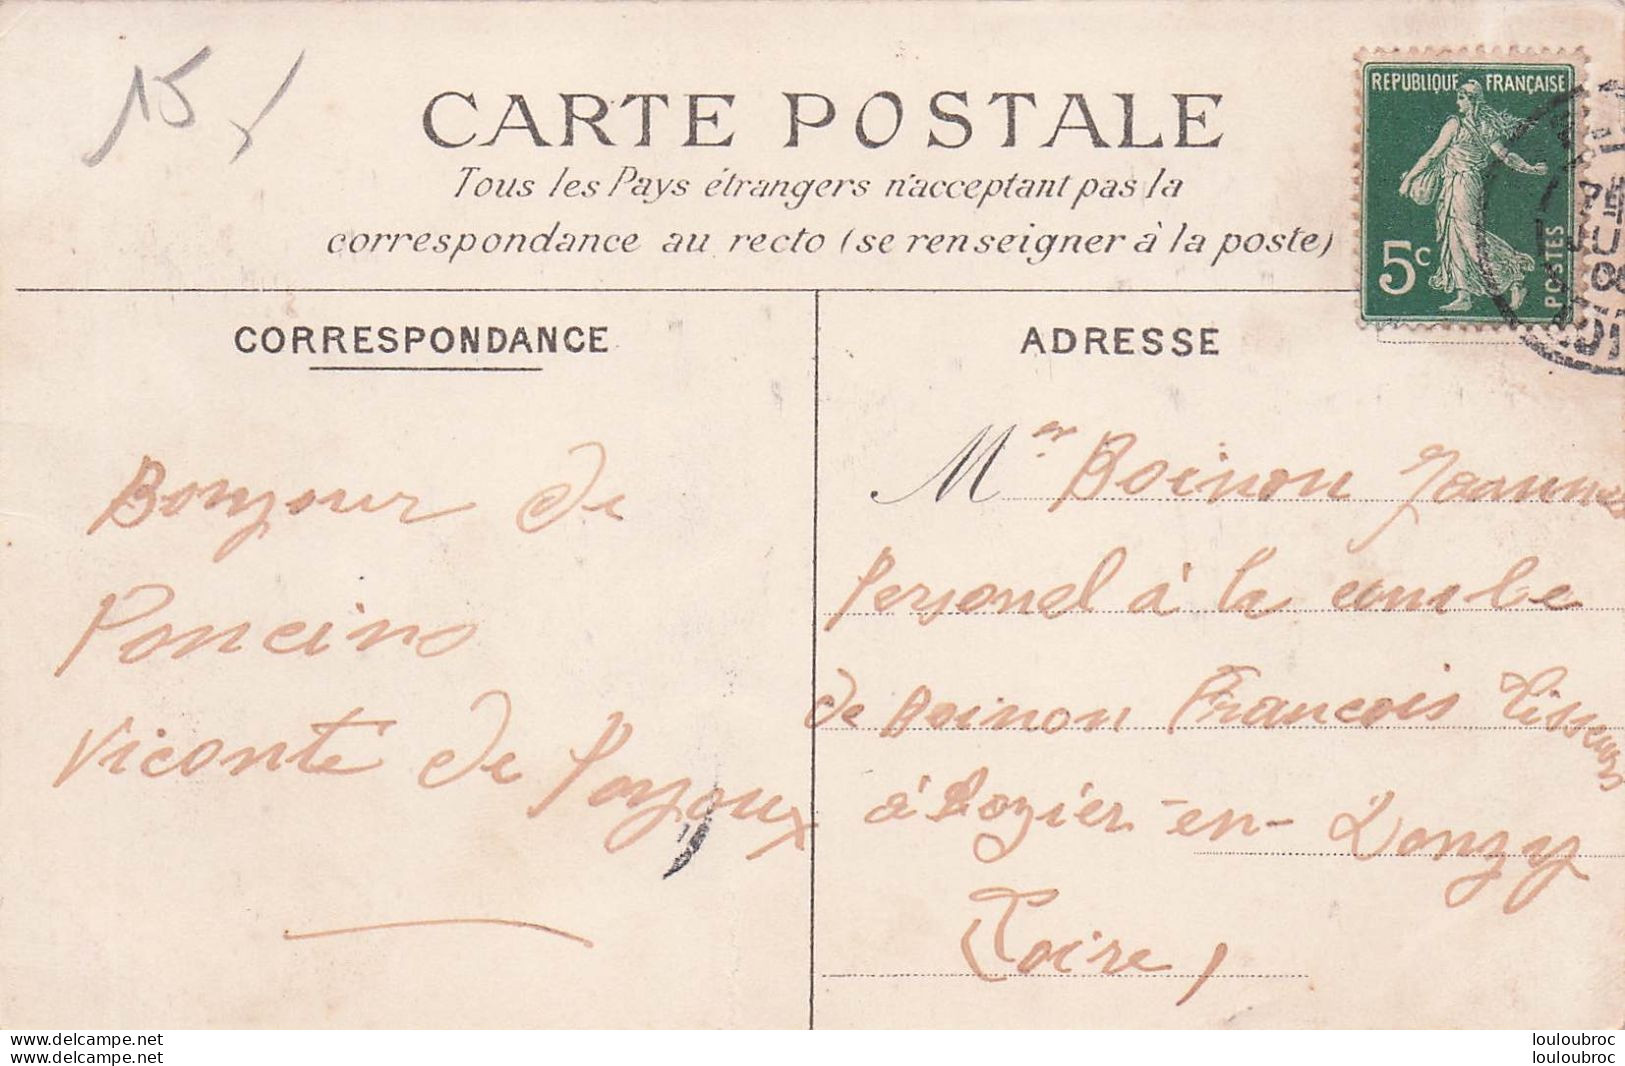 15
CARTE POSTALE
Tous les Pays étrangers n'acceptant pas la
correspondance au recto (se renseigner à la poste)
REPUBLIQUE FRANÇAISE
5c
POSTES
CORRESPONDANCE
ADRESSE
Bonjour de
Poncins
Viconte de Poyoux
Mr Boinon Joannes
Personel à la combe
de Boinon Francois Tisseurs
à Rozier-en-Donzy
(Loire)
delcampe.net
delcampe.net
louloubroc
louloubroc